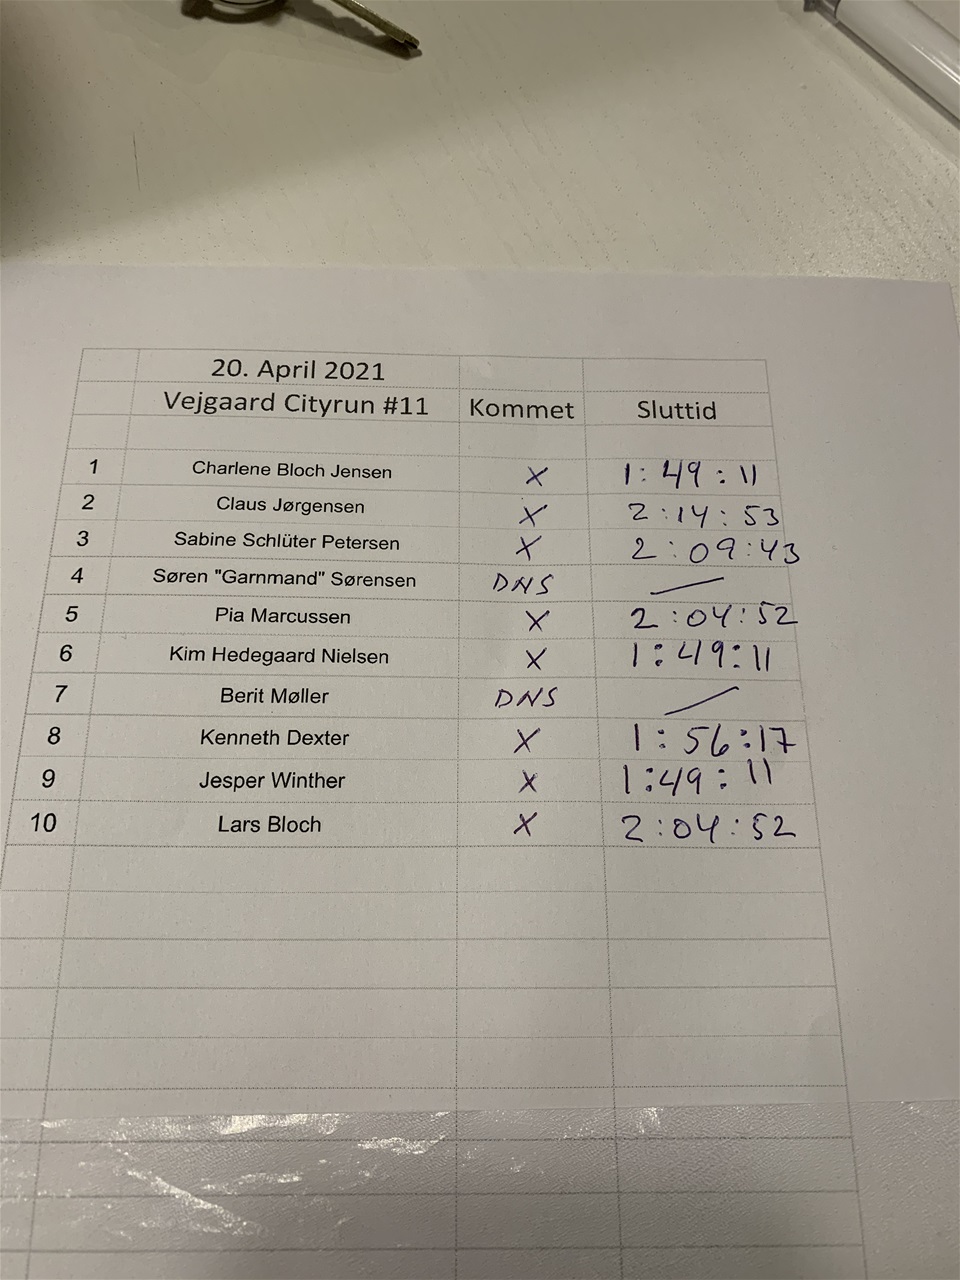 20. April 2021
Vejgaard Cityrun #11 Kommet Sluttid
1 Charlene Bloch Jensen X 1:49:11
2 Claus Jørgensen X 2:14:53
3 Sabine Schlüter Petersen X 2:09:43
4 Søren "Garnmand" Sørensen DNS —
5 Pia Marcussen X 2:04:52
6 Kim Hedegaard Nielsen X 1:49:11
7 Berit Møller DNS —
8 Kenneth Dexter X 1:56:17
9 Jesper Winther X 1:49:11
10 Lars Bloch X 2:04:52